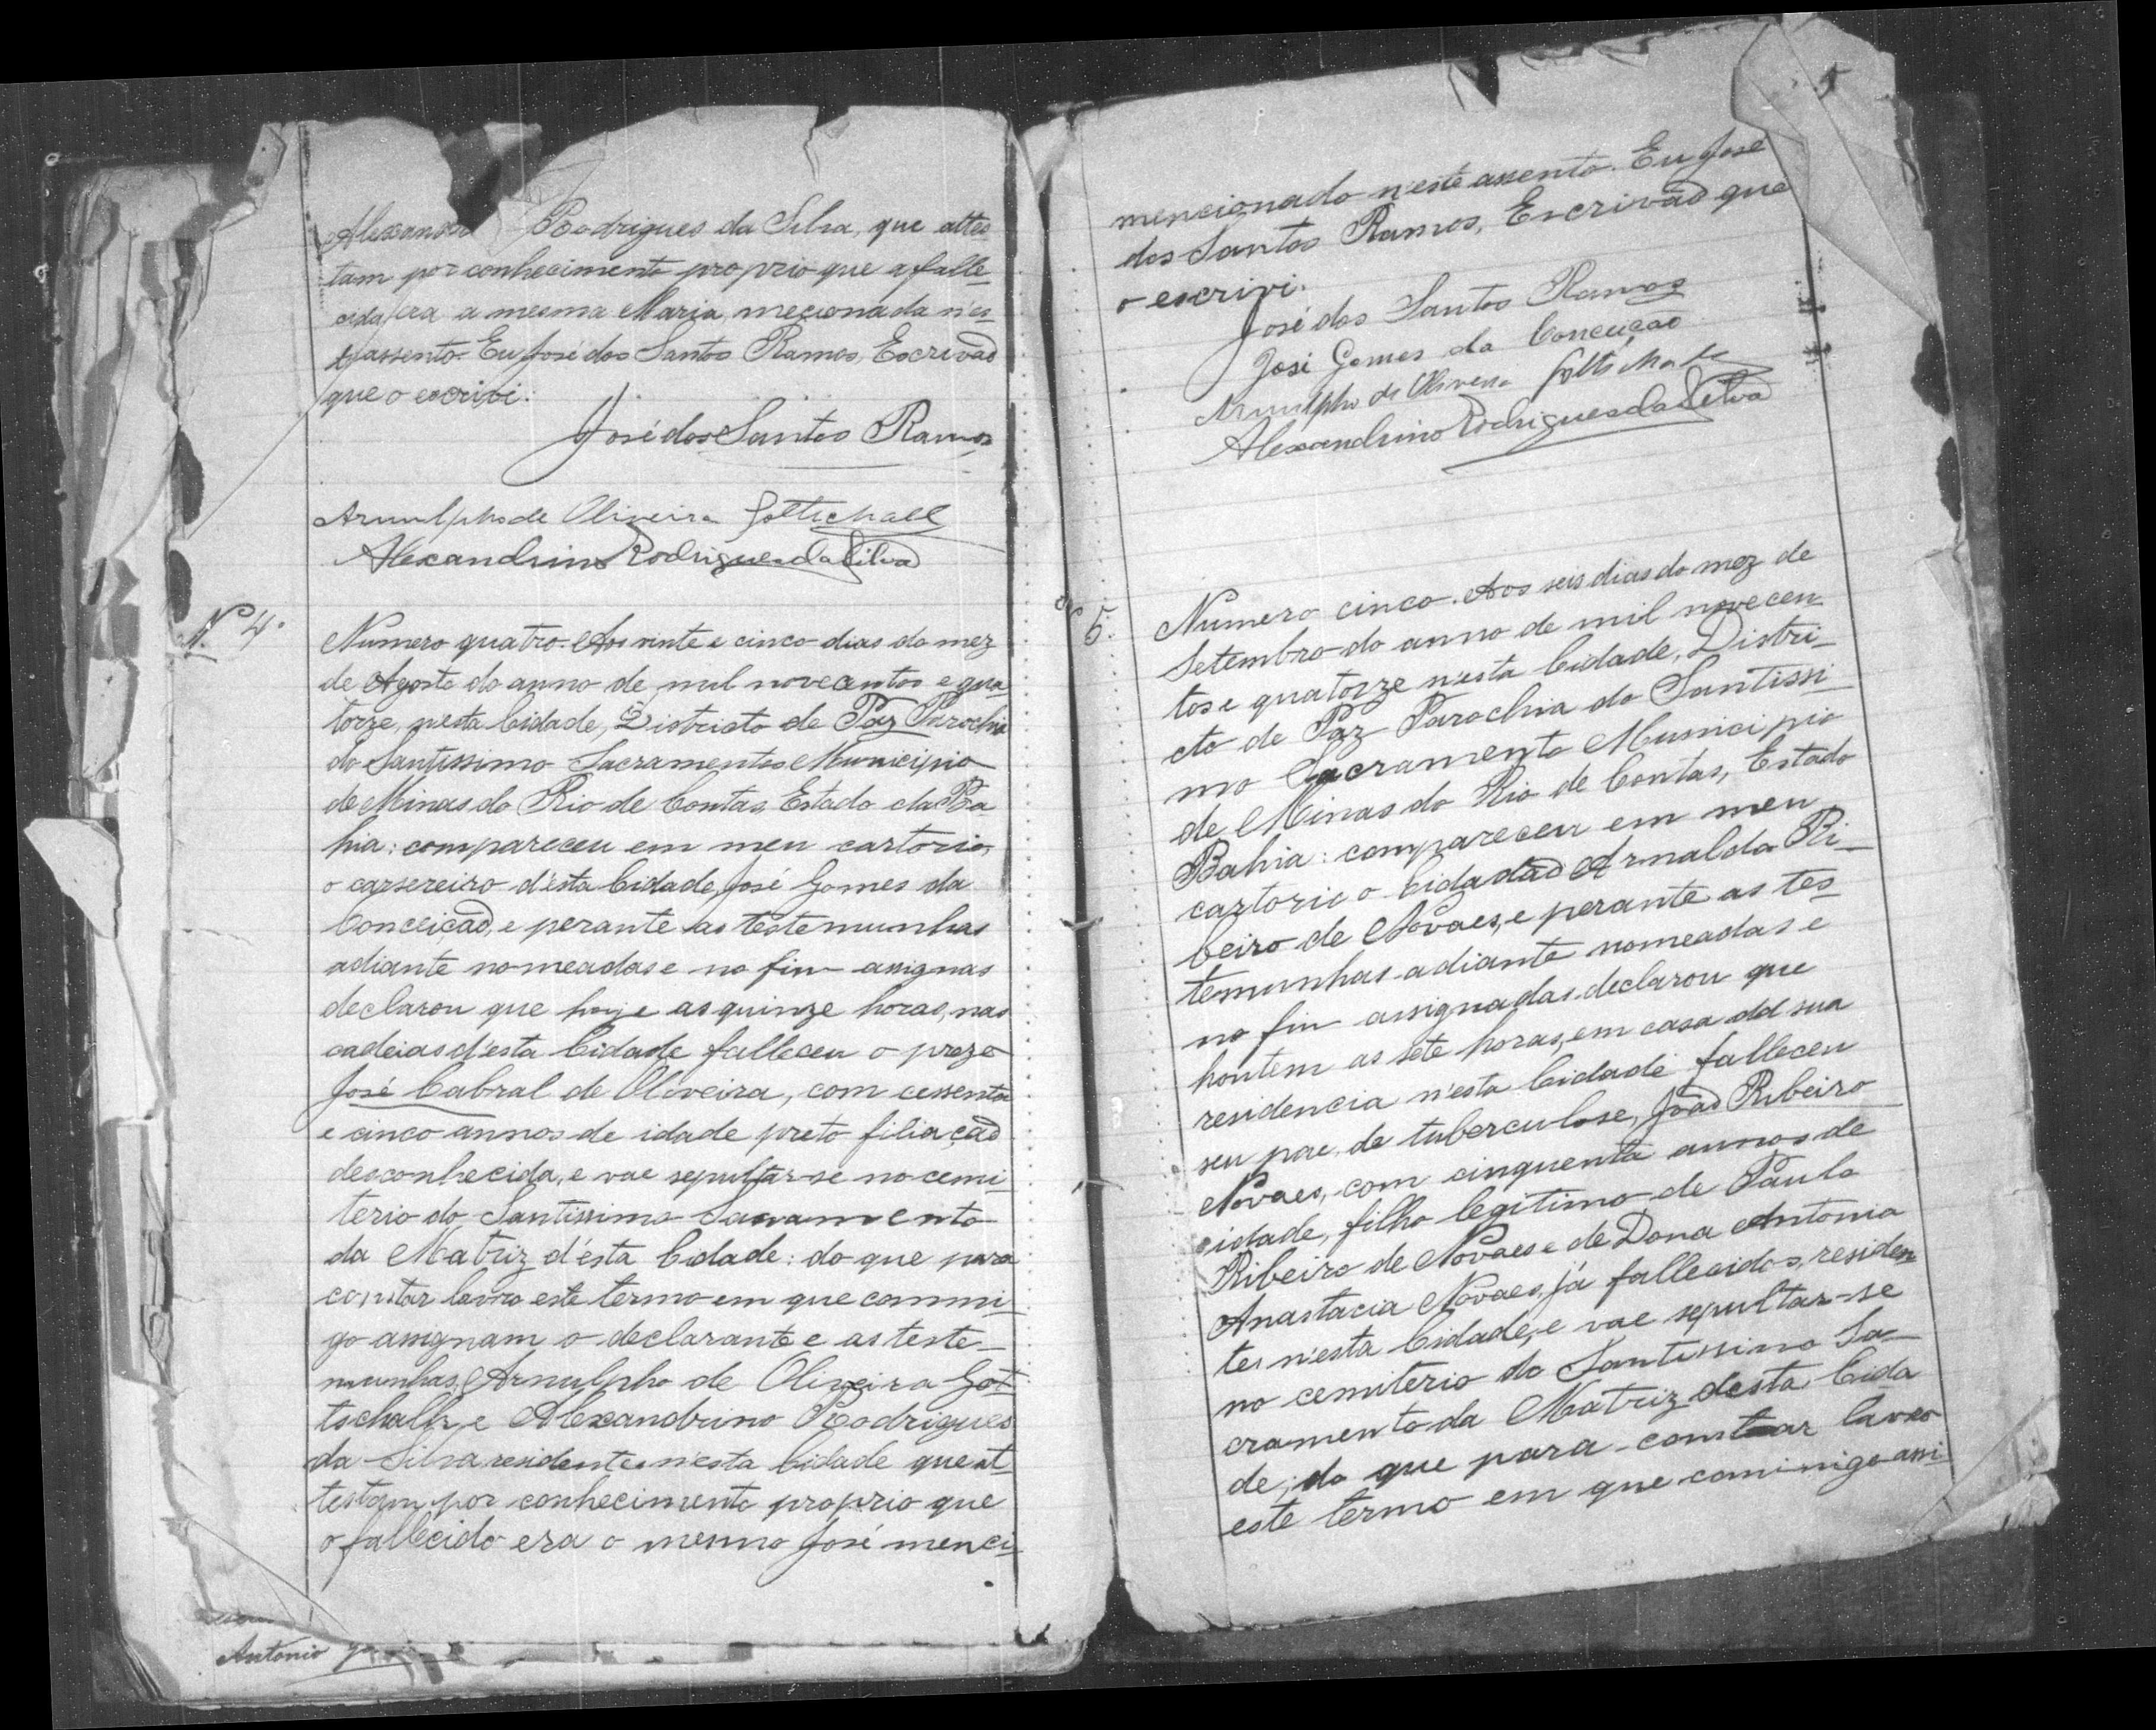 Alexandrino Rodrigues da Silva, que attes
tam por conhecimento proprio que a falle
cida era a mesma Maria, mecionada n'es
te assento. Eu José dos Santos Ramos, Escrivão
que o escrivi.
José dos Santos Ramos
Arnulpho de Oliveira Gottschall
Alexandrino Rodrigues da Silva
Nº 4.
Numero quatro. Aos vinte e cinco dias do mez
de Agosto do anno de mil novecentos e qua
torze, nesta Cidade, Districto de Paz Parochia
do Santissimo Sacramento Municipio
de Minas do Rio de Contas, Estado da Ba
hia: compareceu em meu cartorio,
o carsereiro d'esta Cidade, José Gomes da
Conceição, e perante as testemunhas
adiante nomeadas e no fim assignas
declarou que hoje as quinze horas, nas
cadeias d'esta Cidade falleceu o prezo
José Cabral de Oliveira, com cessenta
e cinco annos de idade preto filiação
desconhecida, e vae sepultar-se no cemi
terio do Santissimo Sacramento
da Matriz d'ésta Cidade: do que para
constar lavro este termo em que commi
go assignam o declarante e as teste-
munhas, Arnulpho de Oliveira Got
tschall, e Alexandrino Rodrigues
da Silva residentes n'esta Cidade que at
testam por conhecimento proprio que
o fallecido era o mesmo José menci
Antonio
5
mencionado n'este assento. Eu José
dos Santos Ramos, Escrivão que
o escrivi.
José dos Santos Ramos
José Gomes da Conceição
Arnulpho de Oliveira Gottschall
Alexandrino Rodrigues da Silva
Nº 5.
Numero cinco. Aos seis dias do mez de
Setembro do anno de mil novecen
tos e quatorze n'esta Cidade, Distri-
cto de Paz Parochia do Santissi
mo Sacramento Municipio
de Minas do Rio de Contas, Estado
Bahia: compareceu em meu
cartorio o Cidadão Arnaldo Ri-
beiro de Novaes, e perante as tes
temunhas adiante nomeadas e
no fim assignadas, declarou que
hontem as sete horas, em casa dd sua
residencia n'esta Cidade falleceu
seu pae, de tuberculose, João Ribeiro
Novaes, com cinquenta annos de
idade, filho legitimo de Paulo
Ribeiro de Novaes e de Dona Antonia
Anastacia Novaes, já fallecidos, residen
tes n'esta Cidade, e vae sepultar-se
no cemiterio do Santissimo Sa-
cramento da Matriz desta Cida
de; do que para constar lavro
este termo em que commigo assi